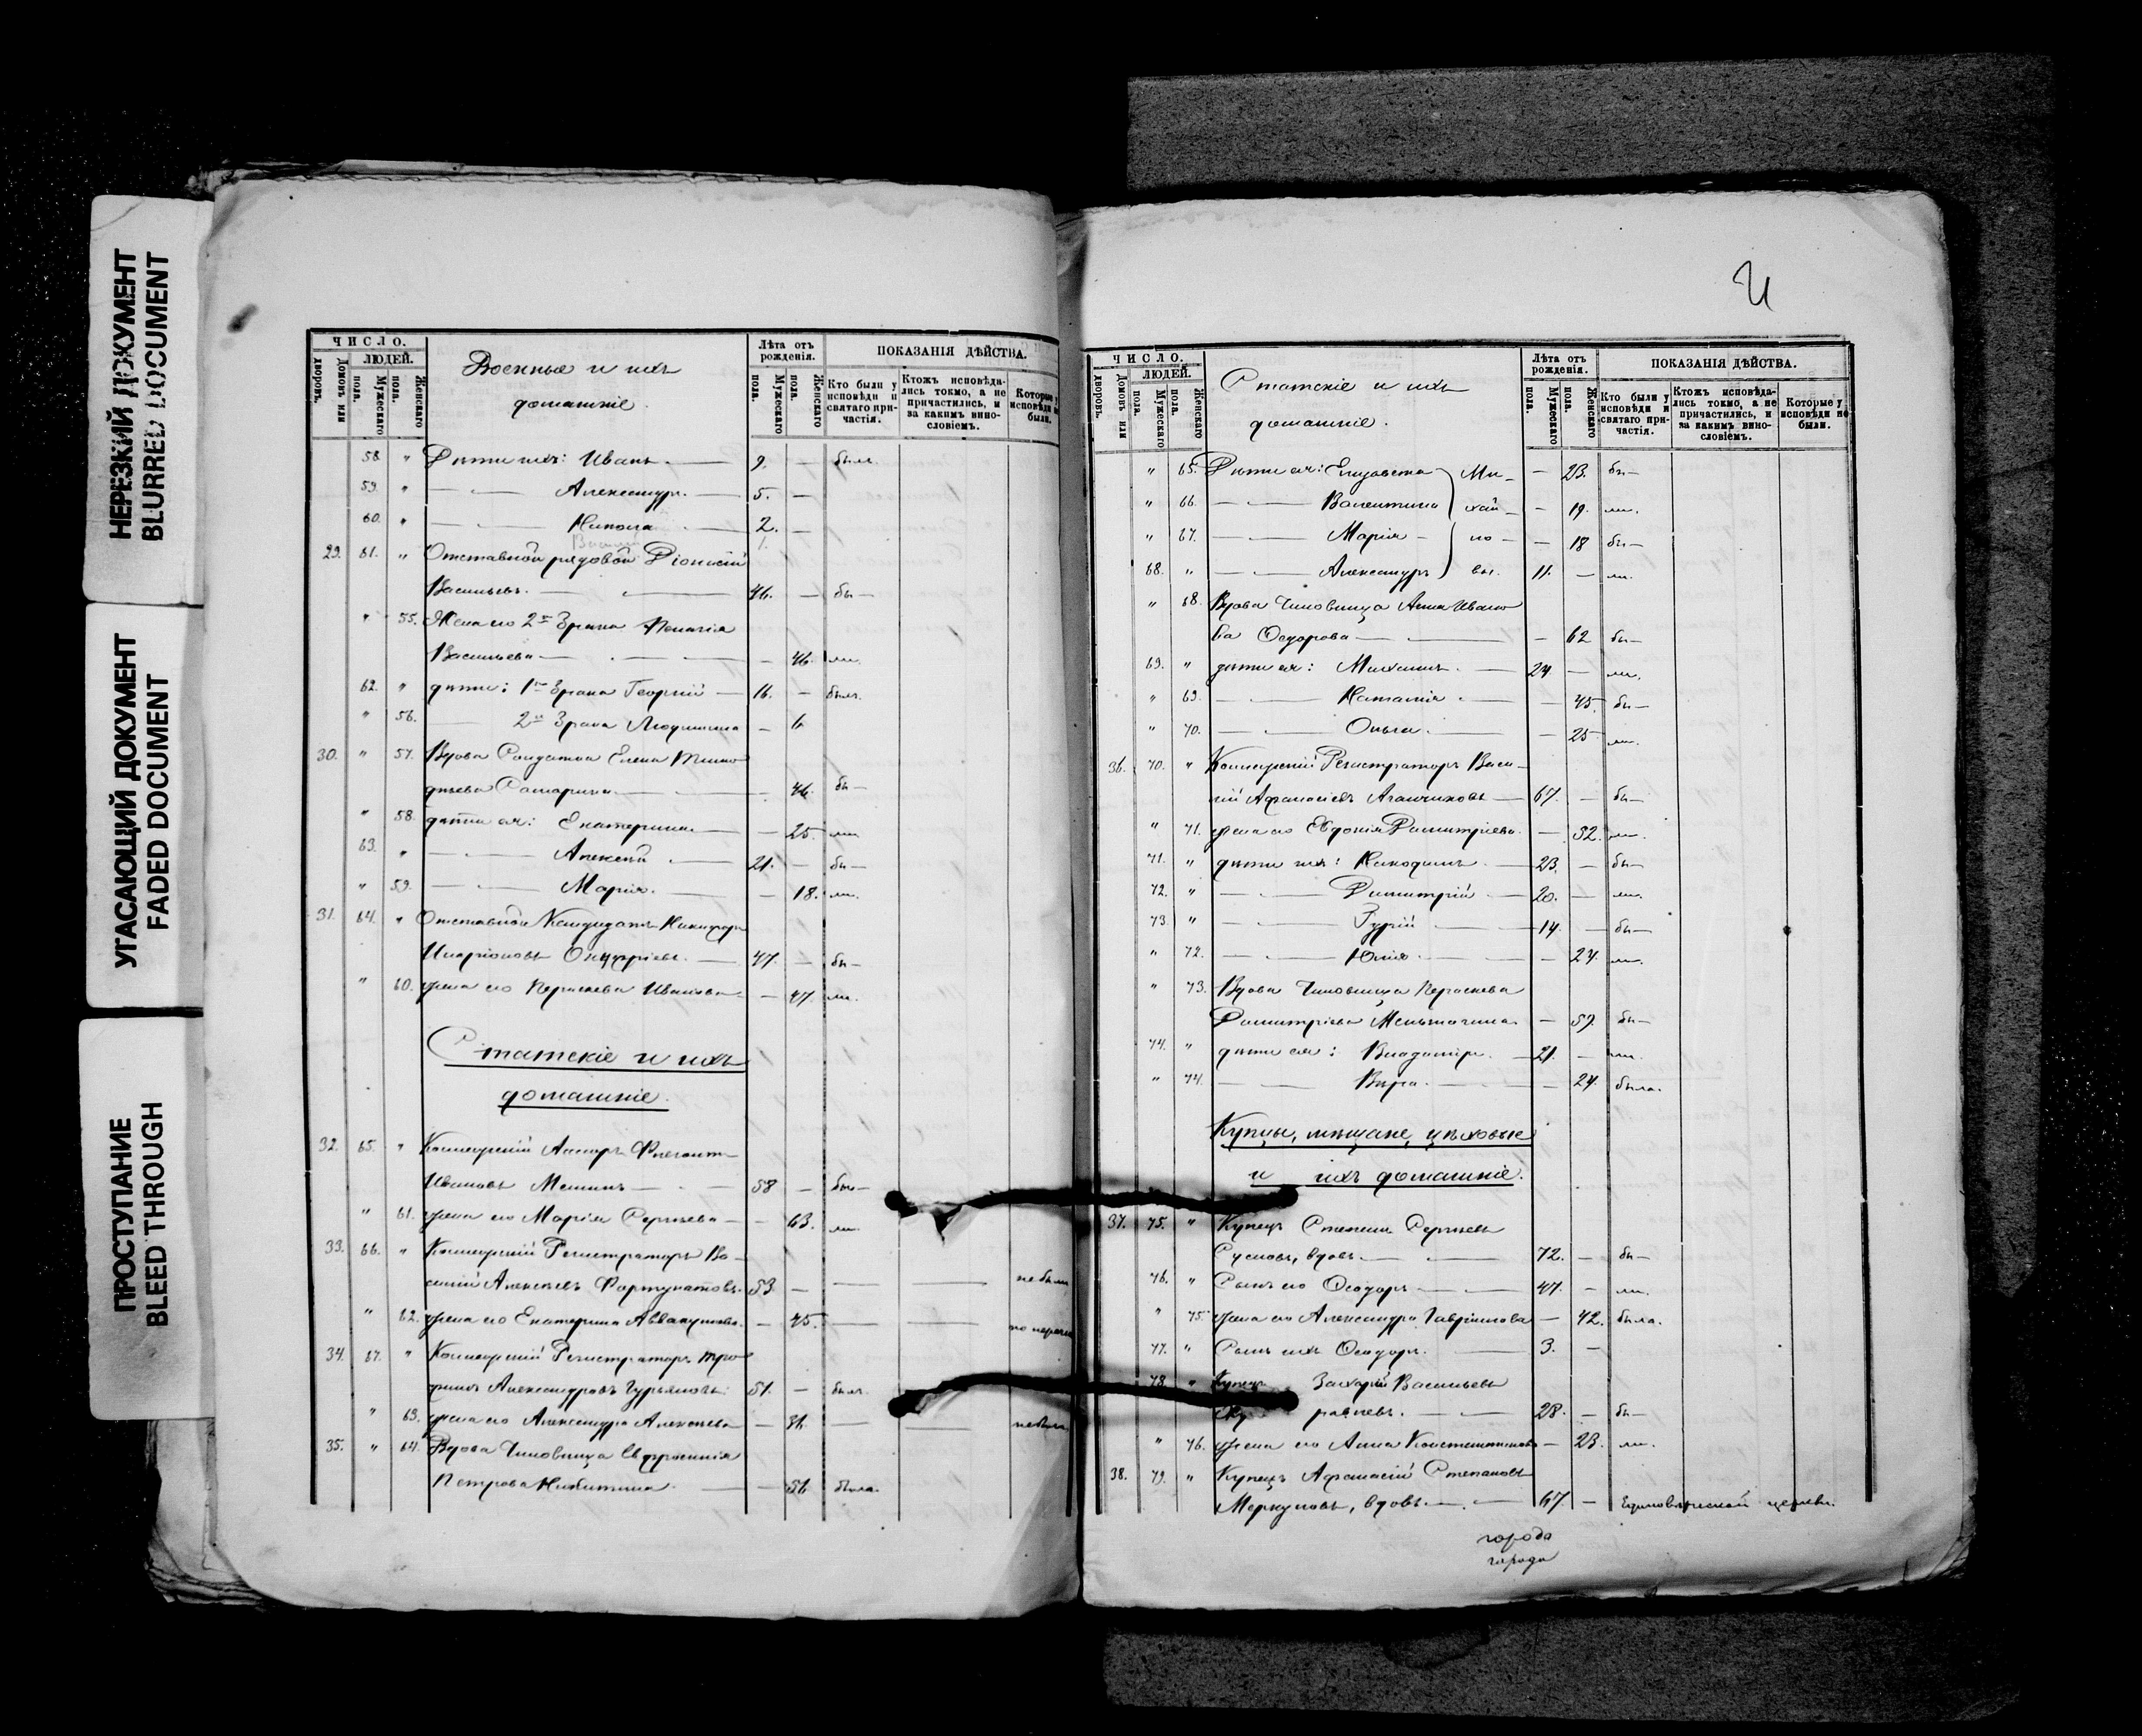 НЕРЕЗКИЙ ДОКУМЕНТ
BLURRED DOCUMENT
УГАСАЮЩИЙ ДОКУМЕНТ
FADED DOCUMENT
ПРОСТУПАНИЕ
BLEED THROUGH
ЧИСЛО.
ЛЮДЕЙ.
Домовъ или дворовъ.
Мужескаго пола.
Женскаго пола.
Военные и ихъ
домашніе.
Лѣта отъ рожденія.
Мужескаго пола.
Женскаго пола.
ПОКАЗАНІЯ ДѢЙСТВА.
Кто были у исповѣди и святаго причастія.
Ктожъ исповѣдались токмо, а не причастились, и за какимъ винословіемъ.
Которые у исповѣди не были.
58. " Дѣти ихъ: Иванъ. — 9. — былъ
59. " — — Александръ. — 5. —
60. " — — Никола — 2. —
29. 61. " Отставной рядовой Діонисій
Васильевъ. — — 46. — бы—
" 55. Жена его 2го брака Пелагія
Васильева — — — 46. ли.
62. " дѣти: 1го брака Георгій — 16. — былъ.
" 56. — 2го брака Людмила —
30. " 57. Вдова Солдатка Елена
Самарина — — 46. бы—
" 58. дѣти ея: Екатерина — 25. ли
63. " — — Алексѣй — 21. — бы—
" 59. — — Марія. — — 18. ли.
31. 64. " Отставной Кандидатъ Никифоръ
Иларіоновъ Онуфріевъ. — 47. — бы—
" 60. жена его Параскева Иванова — 47. ли.
Статскіе и ихъ
домашніе.
32. 65. " Коллежскій
Ивановъ — 58 — бы—
" 61. жена его Марія Сергѣева — 63. ли.
33. 66. " Коллежскій Регистраторъ Ва-
силій Алексѣевъ Фортунатовъ. 53. — — — не были
" 62. жена его Екатерина Аввакумова. — 45. — —
34. 67. " Коллежскій Регистраторъ Тро-
фимъ Александровъ Гурьяновъ. 51. — былъ.
" 63. жена его Александра Алексѣева — 36. — —
35. " 64. Вдова Чиновница Евфросинія
Петрова Никитина. — — 56. была.
ЧИСЛО.
ЛЮДЕЙ.
Домовъ или дворовъ.
Мужескаго пола.
Женскаго пола.
Статскіе и ихъ
домашніе.
Лѣта отъ рожденія.
Мужескаго пола.
Женскаго пола.
ПОКАЗАНІЯ ДѢЙСТВА.
Кто были у исповѣди и святаго причастія.
Ктожъ исповѣдались токмо, а не причастились, и за какимъ винословіемъ.
Которые у исповѣди не были.
" 65. Дѣти ея: Елизавета Ми- — 23. бы—
" 66. — — Валентина хай- — 19. ли.
" 67. — — Марія — ло- — 18 бы—
68. " — — Александръ вы. 11. — ли.
" 68. Вдова Чиновница Анна Ивано
ва Ѳедорова — — — 62 бы—
69. " дѣти ея: Михаилъ. — 24 — ли.
" 69. — — Наталія — — 45. бы—
" 70. — — Ольга. — — 25. ли.
36. 70. " Коллежскій Регистраторъ Васи-
лій Аѳанасіевъ — 67. — бы—
" 71. жена его Евдокія Димитріева. — 52. ли.
71. " дѣти ихъ: Никодимъ — 23. — бы—
72. " — — Димитрій — 20. — ли.
73. " — — Гурій — 14. — бы—
" 72. — — Юлія — — 24. ли.
" 73. Вдова Чиновница Параскева
Димитріева — 59. бы—
74. " дѣти ея: Владиміръ. — 21. — ли.
" 74. — — Вѣра. — — 24. была.
Купцы, мѣщане, цѣховые
и ихъ домашніе.
37. 75. " Купецъ Степанъ Сергѣевъ
Сусловъ, вдовъ. — — 72. — бы—
76. " Сынъ его Ѳеодоръ — 47. — ли.
" 75. жена его Александра Гавріилова — 42. была.
77. " Сынъ ихъ Ѳеодоръ. — 3. —
78. " Купецъ Захарій Васильевъ
28. — бы—
" 76. жена его Анна Константинова — 23. ли.
38. 79. " Купецъ Аѳанасій Степановъ
Меркуловъ, вдовъ. — — 67. — Единовѣрческой церкви.
города
города